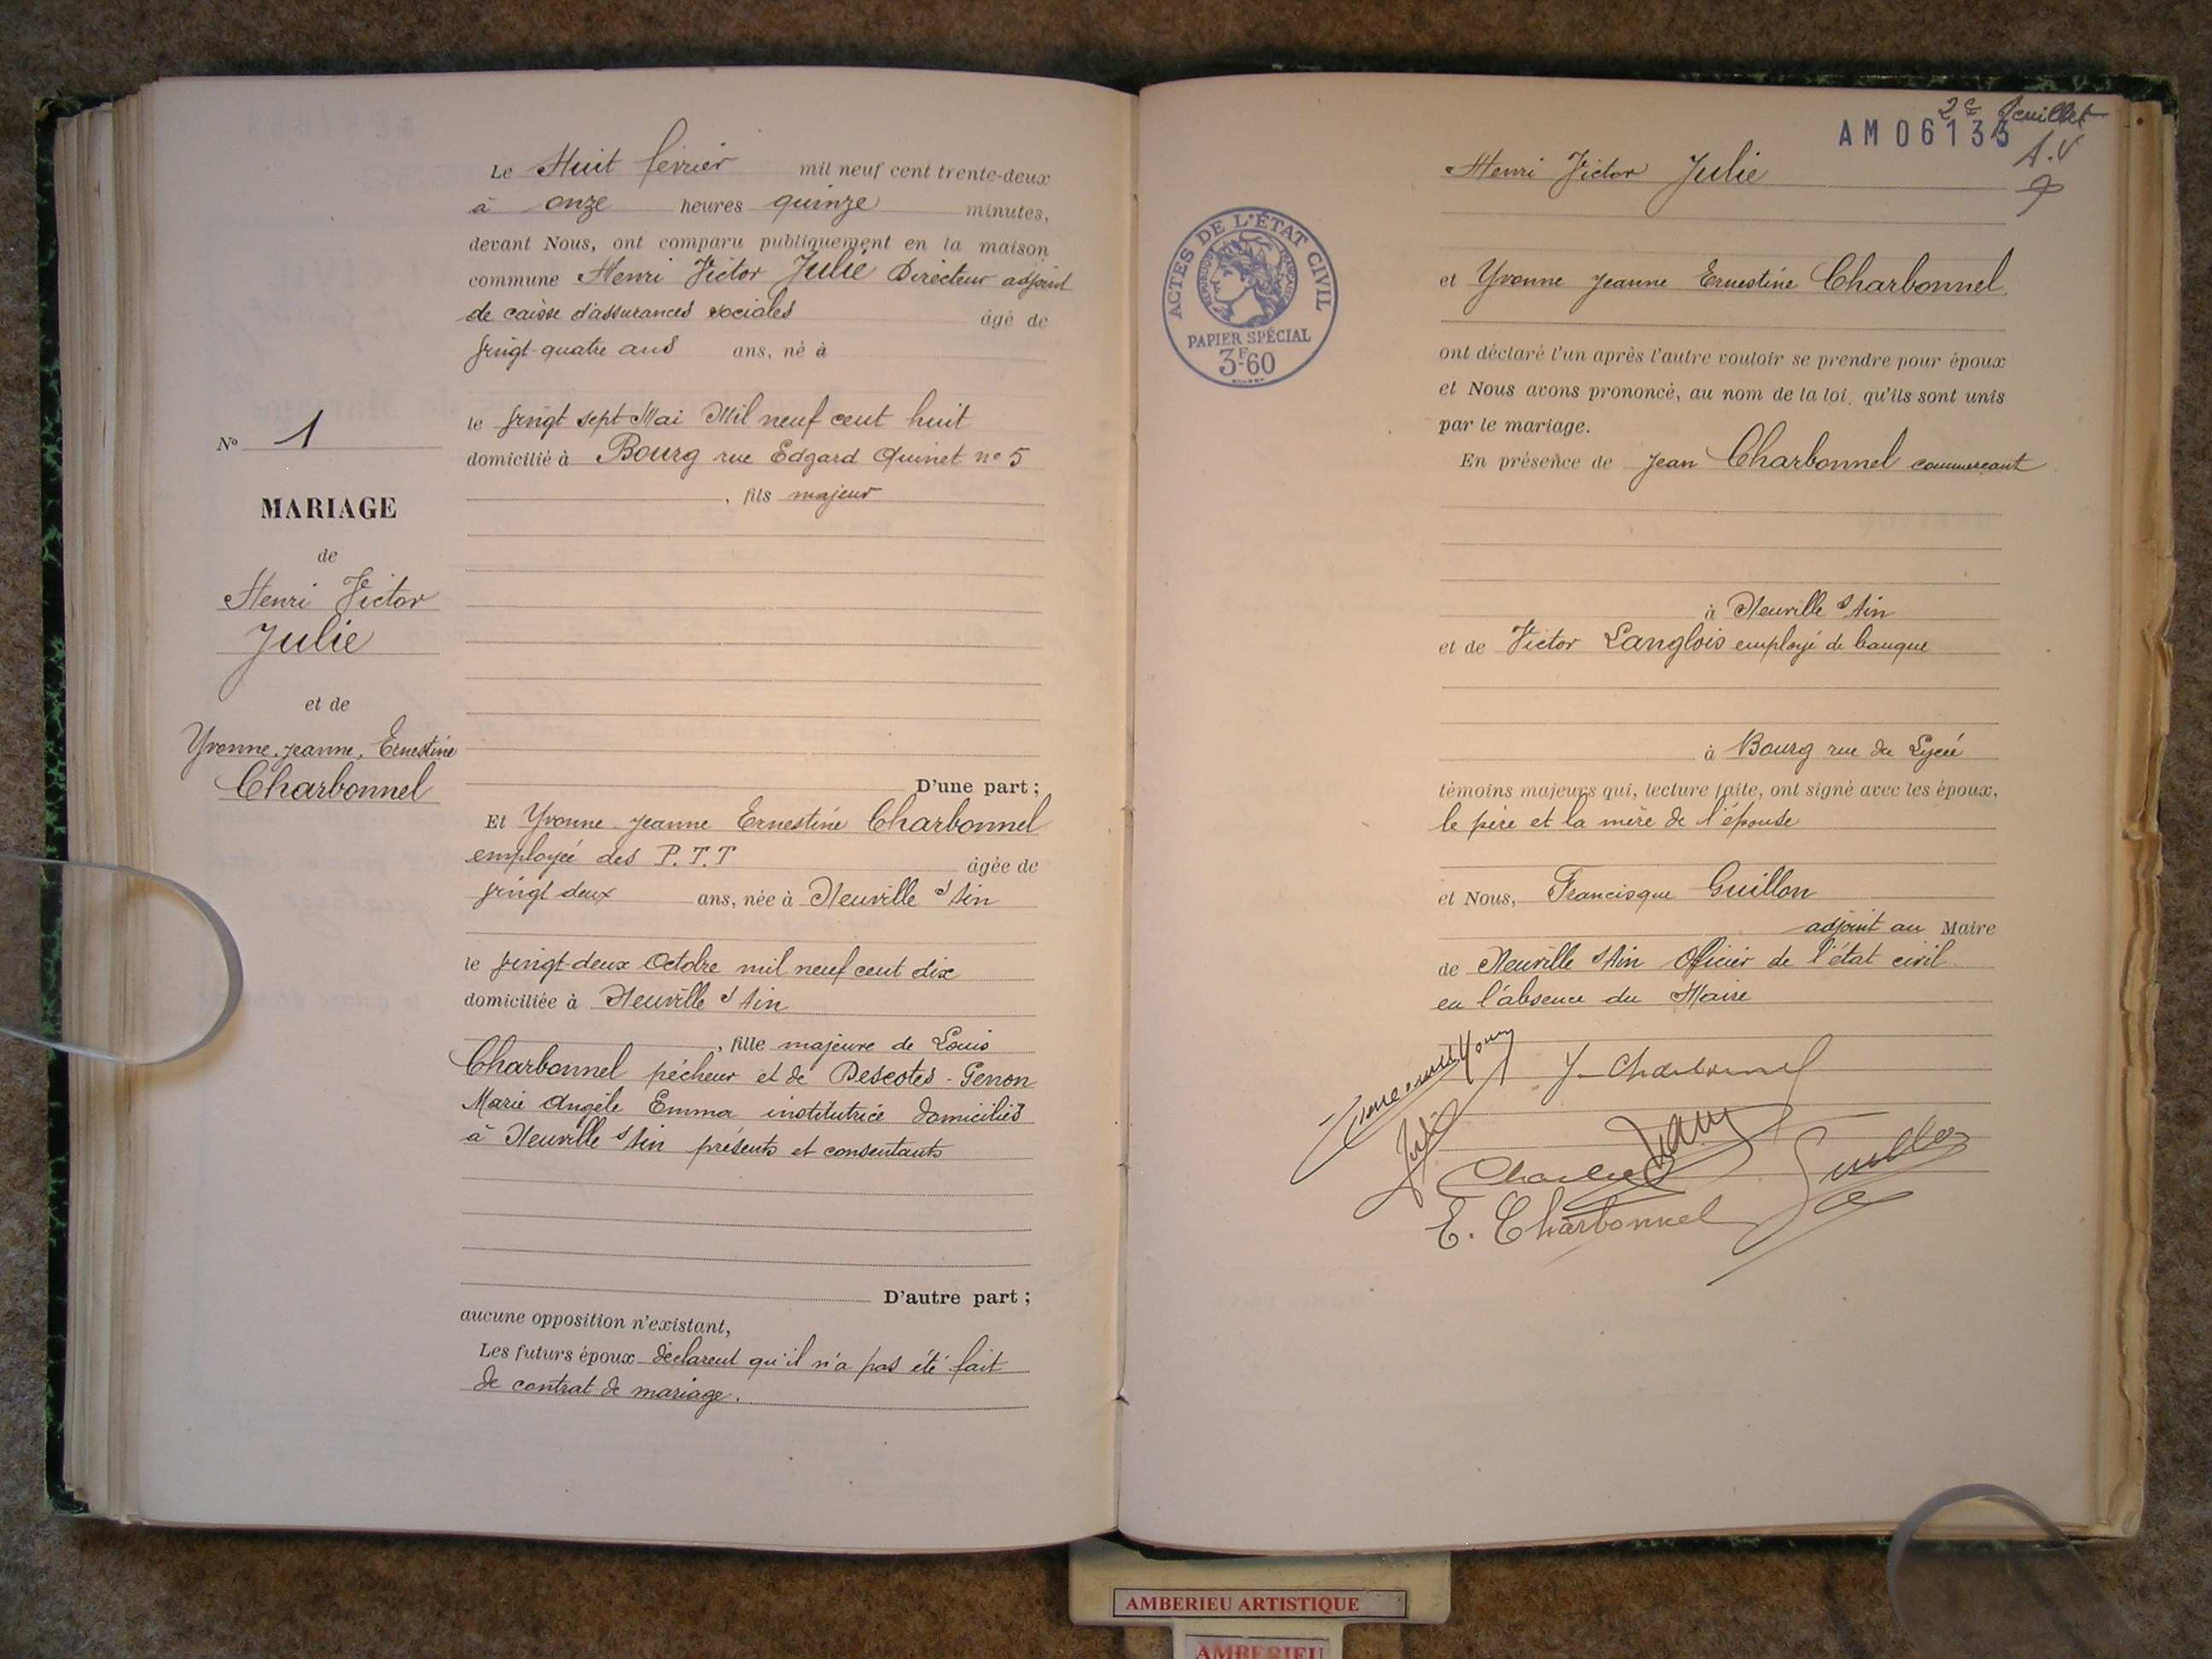 Le Huit février mil neuf cent trente-deux
à onze heures quinze minutes,
devant Nous, ont comparu publiquement en la maison
commune Henri Victor Julie Directeur adjoint
de caisse d'assurances sociales âgé de
vingt-quatre ans ans, né à
le vingt sept Mai Mil neuf cent huit
domicilié à Bourg rue Edgard Quinet n° 5
, fils majeur
N° 1
MARIAGE
de
Henri Victor
Julie
et de
Yvonne, Jeanne, Ernestine
Charbonnel
D'une part ;
Et Yvonne Jeanne Ernestine Charbonnel
employée des P.T.T âgée de
vingt deux ans, née à Neuville s/ Ain
le vingt-deux Octobre mil neuf cent dix
domiciliée à Neuville s/ Ain
, fille majeure de Louis
Charbonnel pêcheur et de Descotes-Genon
Marie Angèle Emma institutrice domiciliés
à Neuville s/ Ain présents et consentants
D'autre part ;
aucune opposition n'existant,
Les futurs époux déclarent qu'il n'a pas été fait
de contrat de mariage.
2e feuillet
AM 06133
A.V
Henri Victor Julie
ACTES DE L'ÉTAT CIVIL
RÉPUBLIQUE FRANÇAISE
PAPIER SPÉCIAL
3F60
et Yvonne Jeanne Ernestine Charbonnel
ont déclaré l'un après l'autre vouloir se prendre pour époux
et Nous avons prononcé, au nom de la loi, qu'ils sont unis
par le mariage.
En présence de Jean Charbonnel commerçant
à Neuville s/ Ain
et de Victor Langlois employé de banque
à Bourg rue du Lycée
témoins majeurs qui, lecture faite, ont signé avec les époux,
le père et la mère de l'épouse
et Nous, Francisque Guillon
adjoint au Maire
de Neuville s/ Ain Officier de l'état civil
en l'absence du Maire
Y Charbonnel
Julie
Guillon
E. Charbonnel
AMBERIEU ARTISTIQUE
AMBERIEU